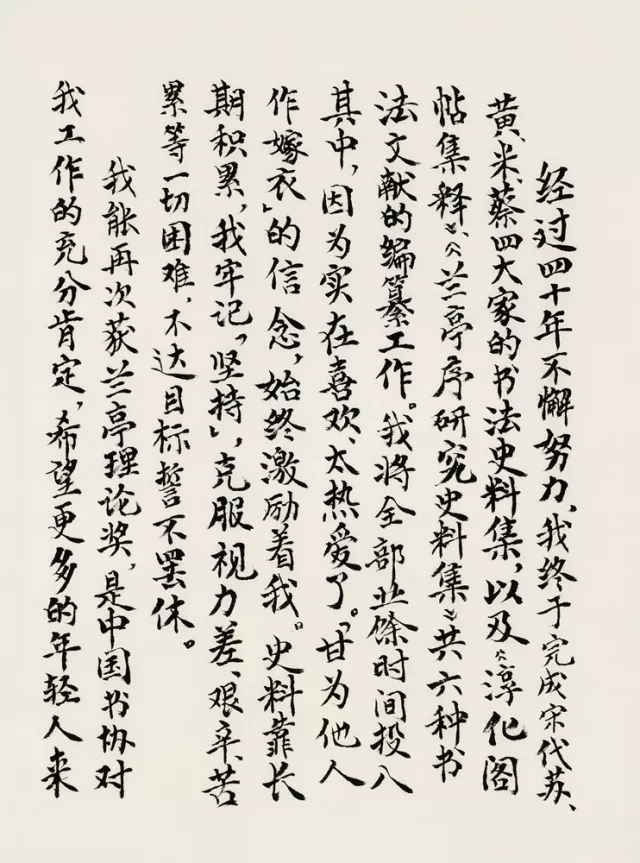 经过四十年不懈努力、我终于完成宋代苏、
黄、米、蔡四大家的书法史料集，以及《淳化阁
帖集释》、《兰亭序研究史料集》共六种书
法文献的编纂工作。我将全部业馀时间投入
其中，因为实在喜欢、太热爱了。「甘为他人
作嫁衣」的信念，始终激励着我。史料靠长
期积累，我牢记「坚持」，克服视力差、艰辛、苦
累等一切困难，不达目标誓不罢休。
我能再次获兰亭理论奖，是中国书协对
我工作的充分肯定，希望更多的年轻人来